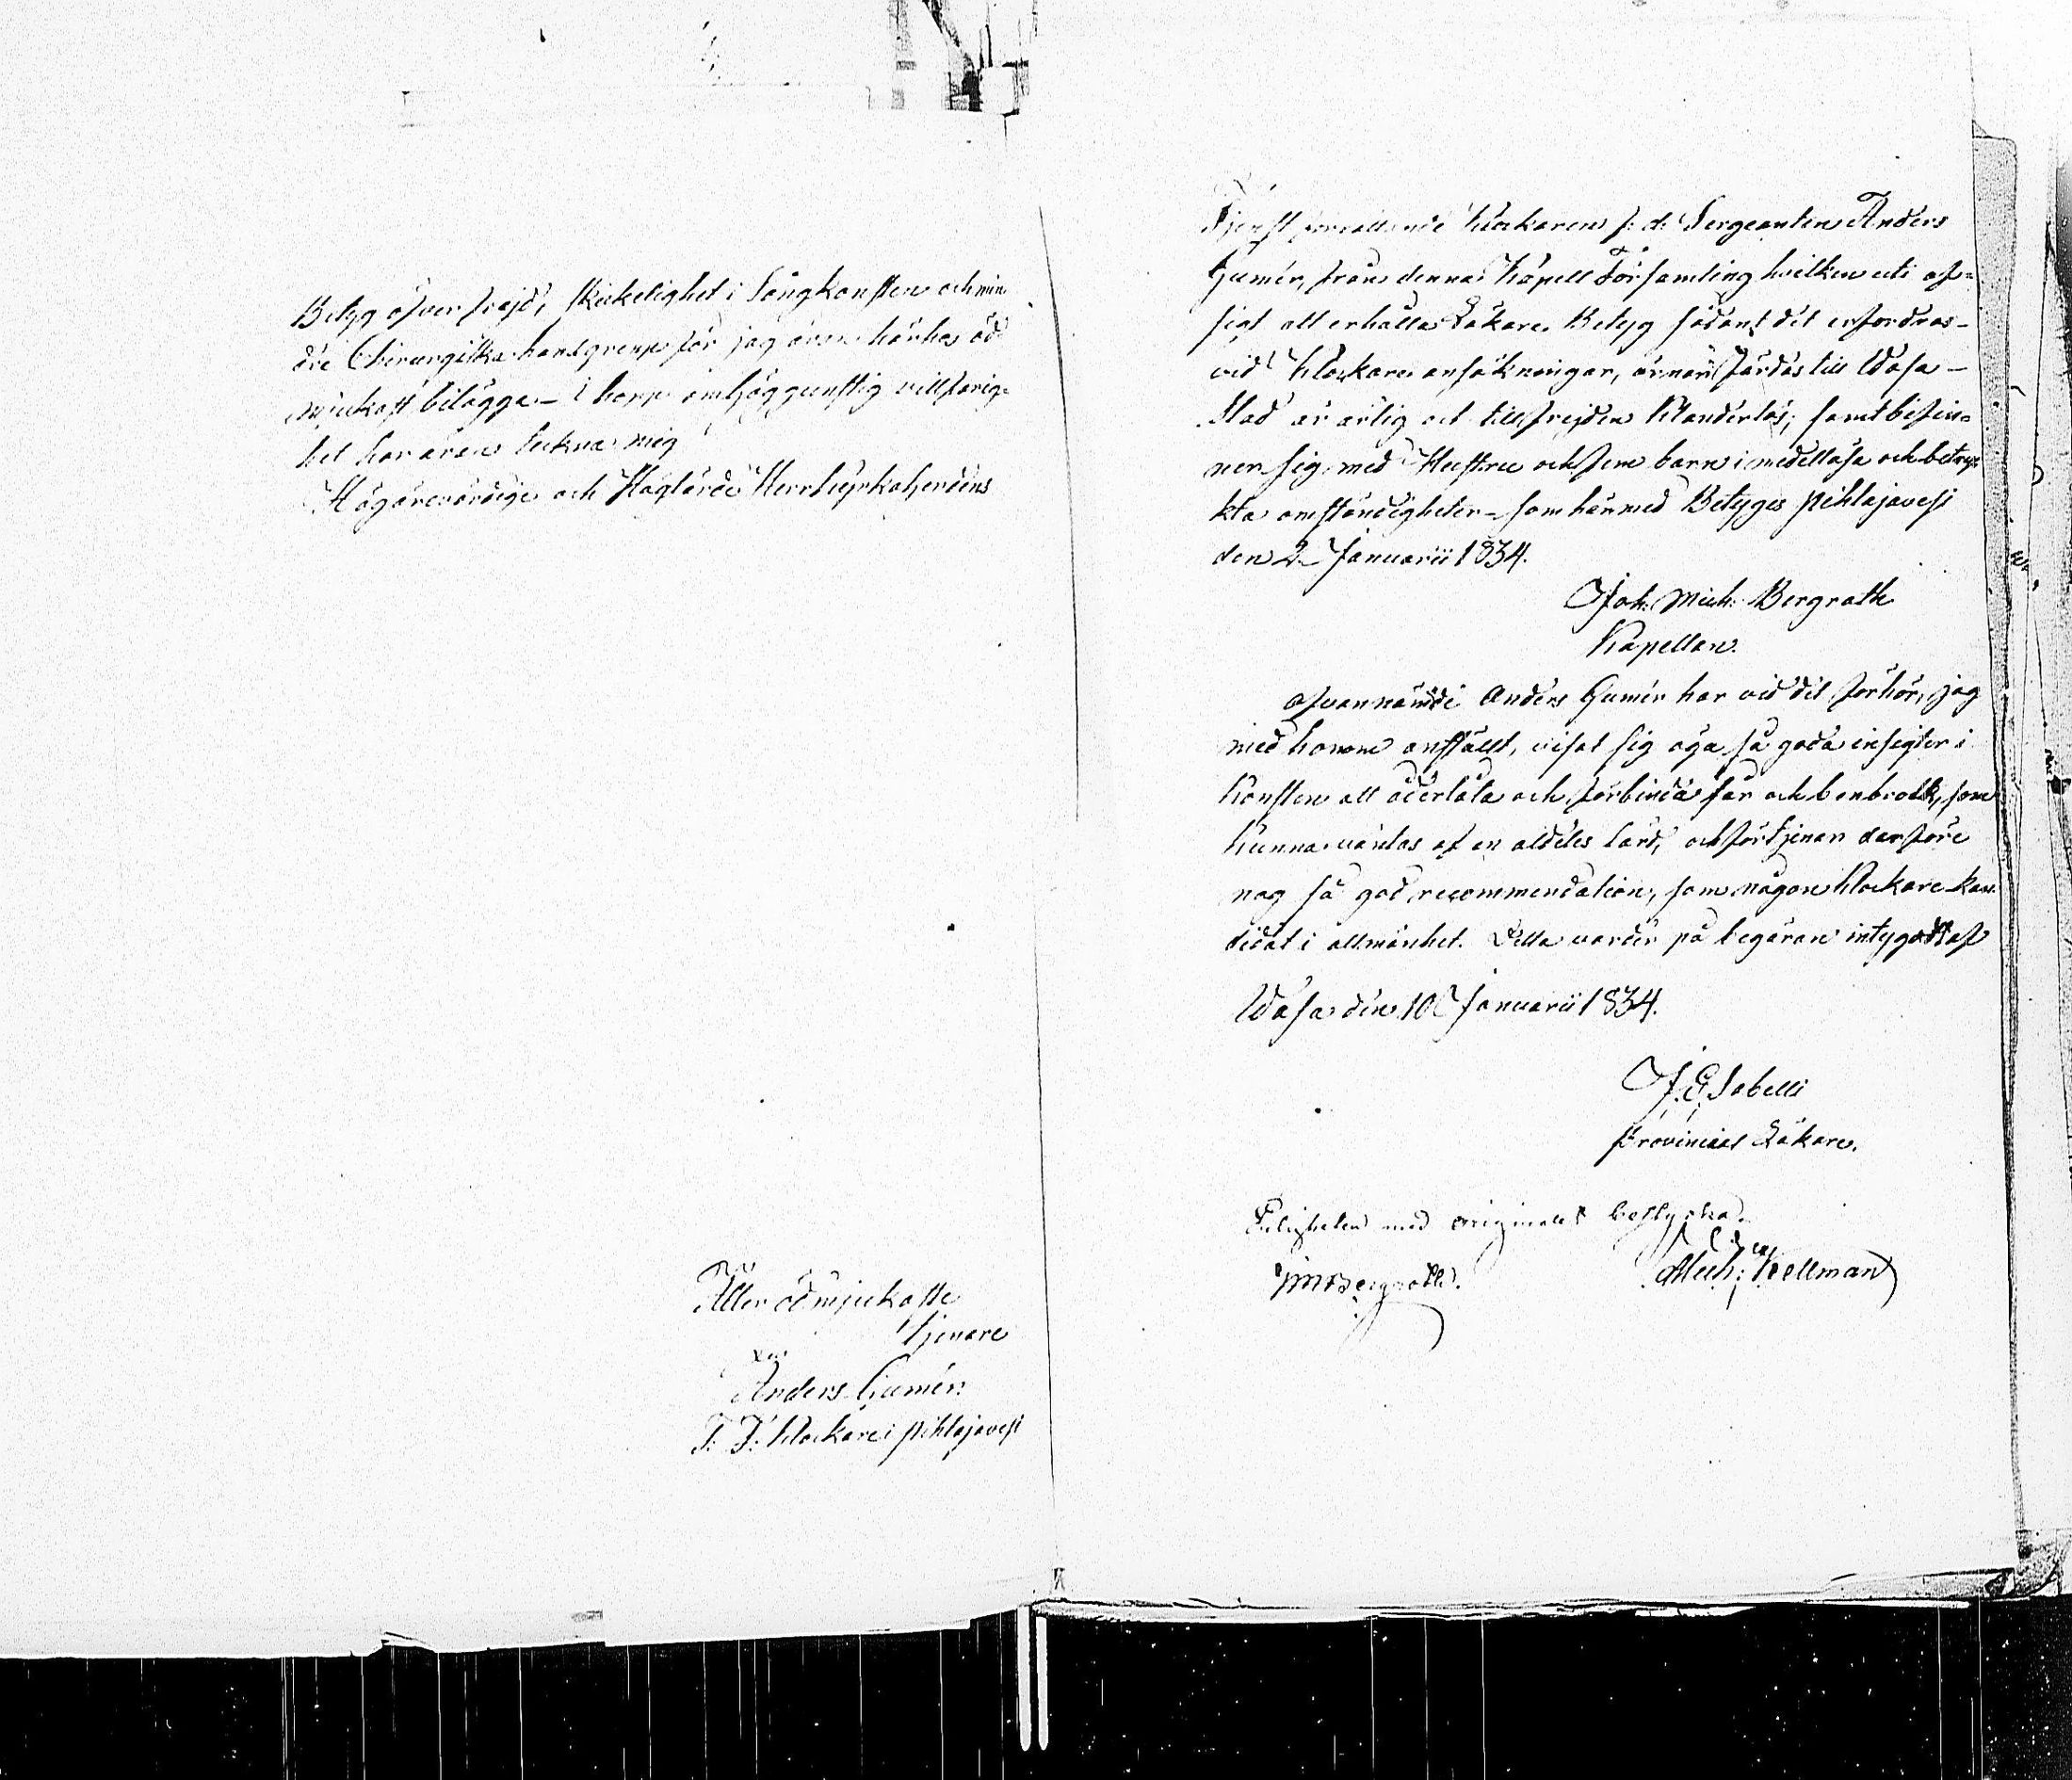 Betyg öfver frejd, skickelighet i Sångkonsten och min
dre Chirurgiska handgrepp får jag även härhos öd
mjukast bilägga – i hopp om höggunstig villfarig-
het har äran teckna mig
Högärevördige och Höglärde Herr Kyrkoherdens
Aller ödmjukaste
tjenare
Anders Gumér
T: F: Klockare i Pihlajavesi
Tjenst förrättande Klockaren f: d: Sergeanten Anders
Gumér, från denna Kapell Församling hvilken uti af-
sigt att erhålla Läkare Betyg sådant det erfordras
vid Klockare ansökningar, ärnar färdas till Wasa
Stad är ärlig och till frejden klanderlös; samt befin-
ner sig med Hustru och fem barn i medellösa och betryc-
kta omständigheter – som härmed Betygas Pihlajavesi
den 2 Januarii 1834.
Joh: Mich: Bergroth
Kapellan.
Ofvannämde Anders Gumér har vid det förhör, jag
med honom anställt, visat sig äga så goda insigter i
konsten att åderlåta och förbinda sår och benbrott, som
kunna väntas af en aldeles lärd, och förtjenar derföre
nog så god recommendation, som någon klockare kan-
didat i allmänhet. Detta varder på begäran intygadt af
Wasa den 10 Januarii 1834.
J. E. Sabelli
Provincial Läkare.
Enligheten med originalet bestyrka
JMBergroth.
Mich: Kellman